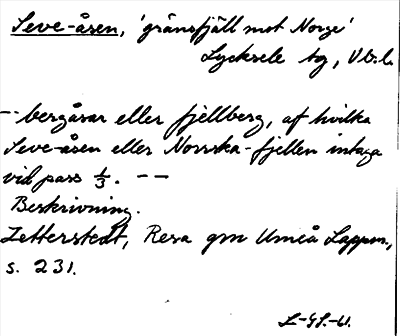 Seve-åsen, 'gränsfjäll mot Norge'
Lycksele tg, Vb. l.
-- bergåsar eller fjellberg, af hvilka
Seve-åsen eller Norrska-fjellen intaga
vid pass 1/3. --
Beskrivning.
Zetterstedt, Resa gm Umeå Lappm.,
s. 231.